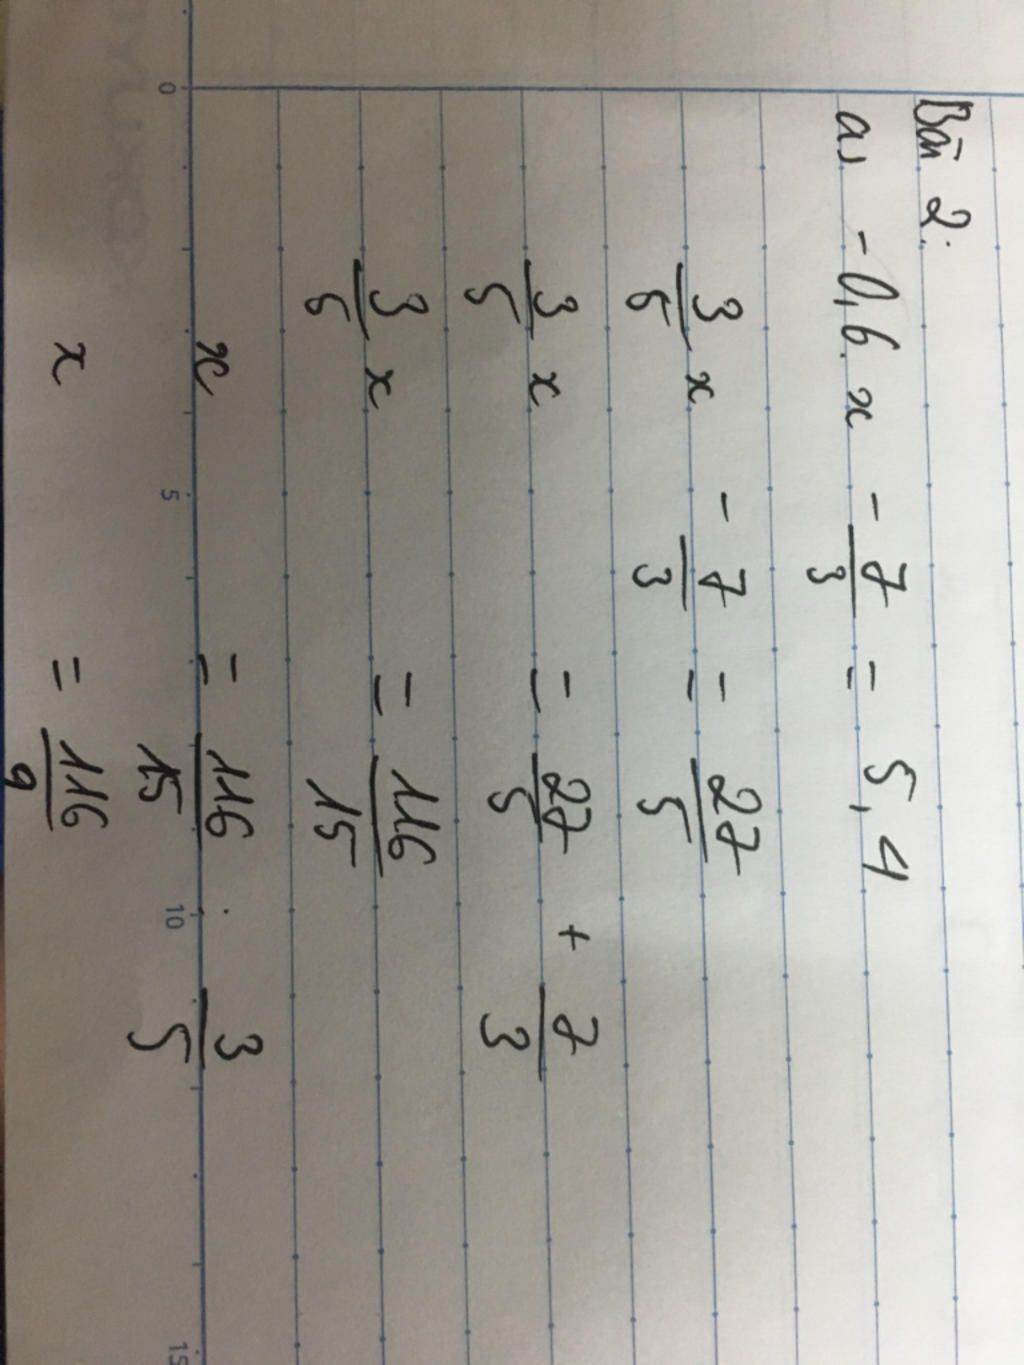 Bài 2:
a) -0,6.x - 7/3 = 5,4
3/5 x - 7/3 = 27/5
3/5 x = 27/5 + 7/3
3/5 x = 116/15
x = 116/15 : 3/5
x = 116/9
0 5 10 15